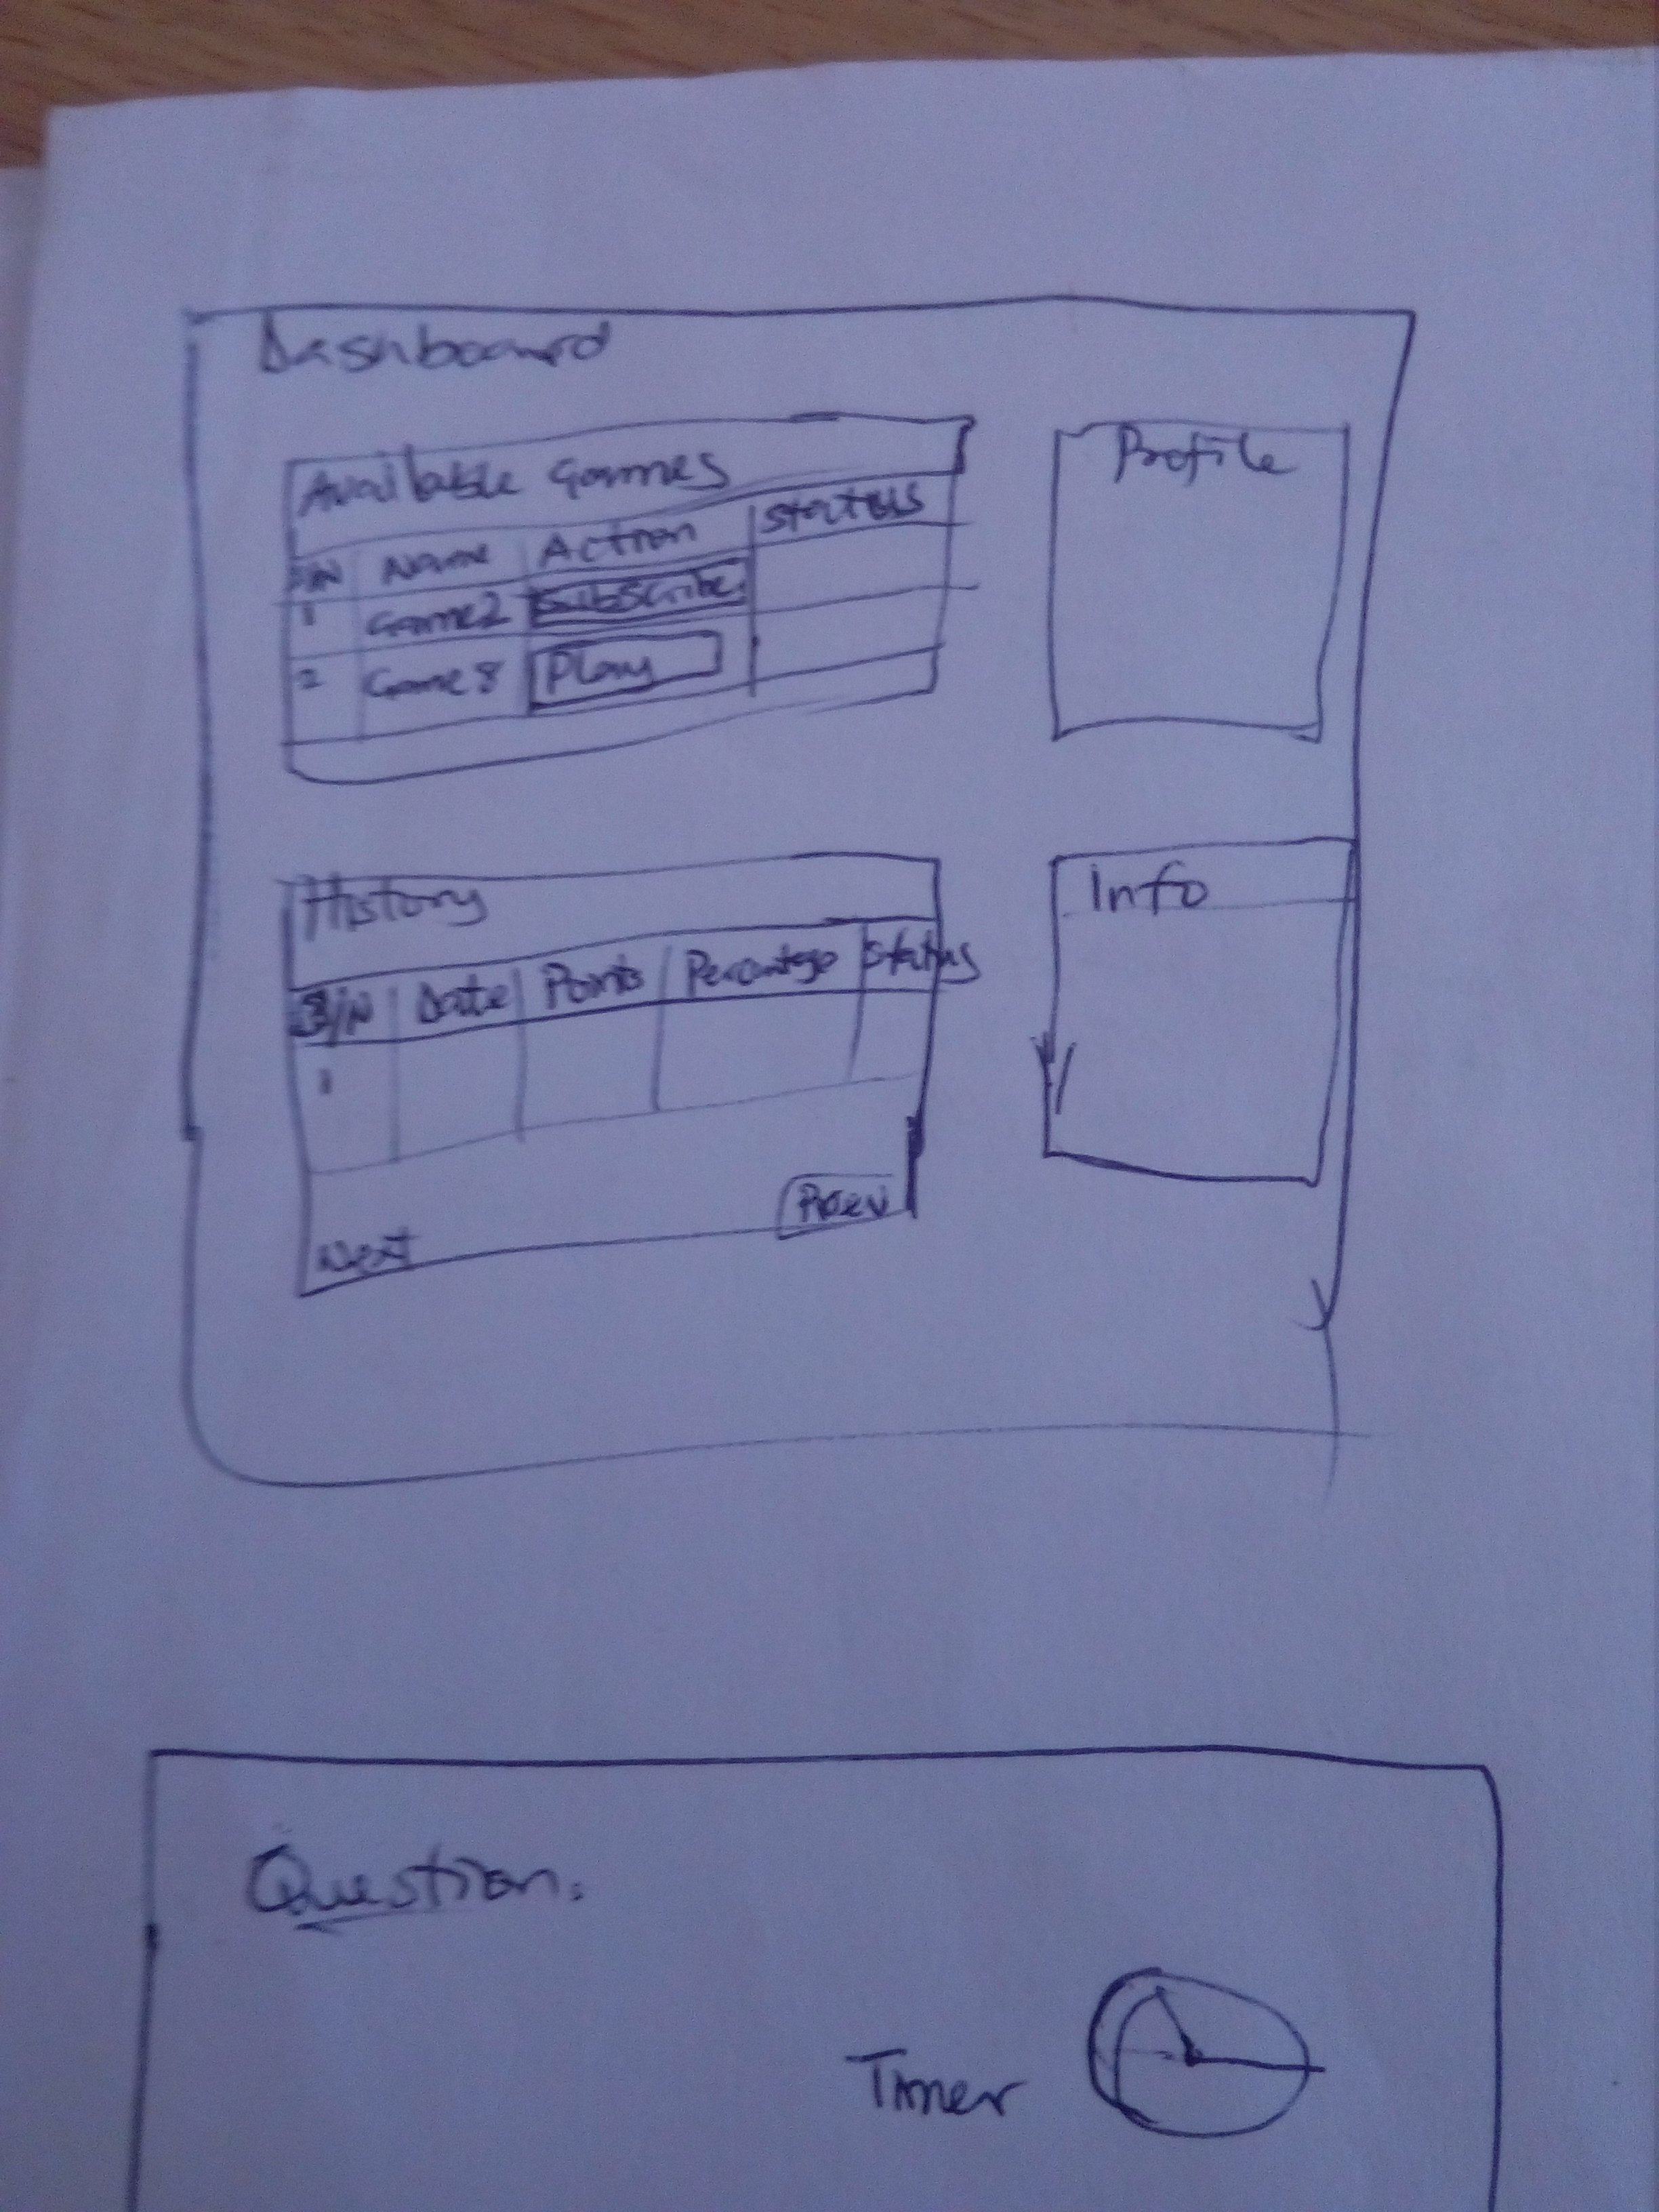 Dashboard
Available Games
S/N Name Action Status
1 Game2 Subscribe
2 Game8 Play
Profile
History
S/N Date Points Percentage Status
1
Next Prev
Info
Question:
Timer